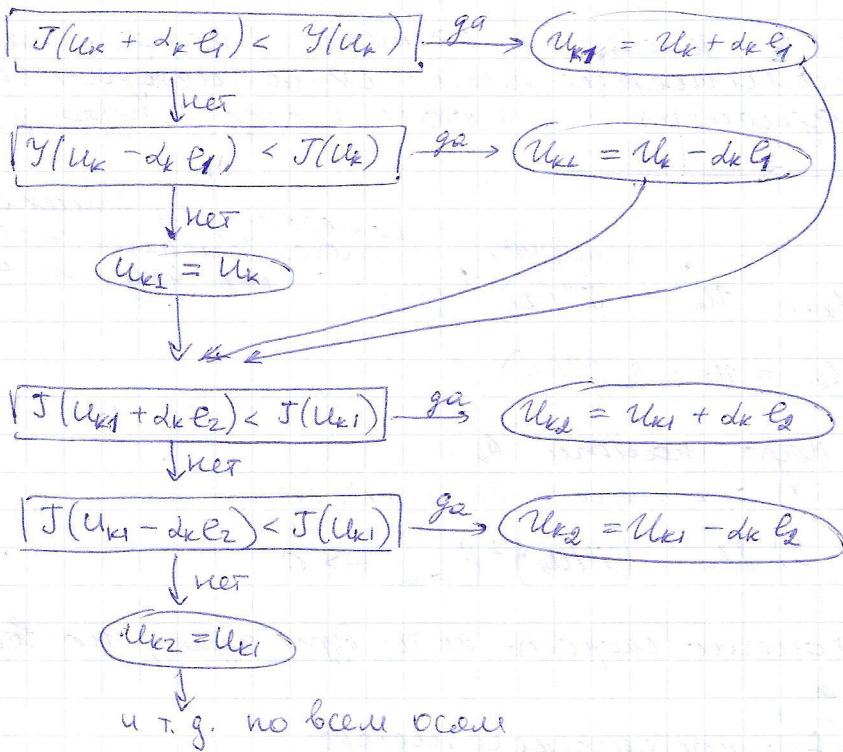 J(u_k + α_k e_1) < J(u_k) да u_k1 = u_k + α_k e_1
нет
J(u_k - α_k e_1) < J(u_k) да u_k1 = u_k - α_k e_1
нет
u_k1 = u_k
J(u_k1 + α_k e_2) < J(u_k1) да u_k2 = u_k1 + α_k e_2
нет
J(u_k1 - α_k e_2) < J(u_k1) да u_k2 = u_k1 - α_k e_2
нет
u_k2 = u_k1
и т.д. по всем осям